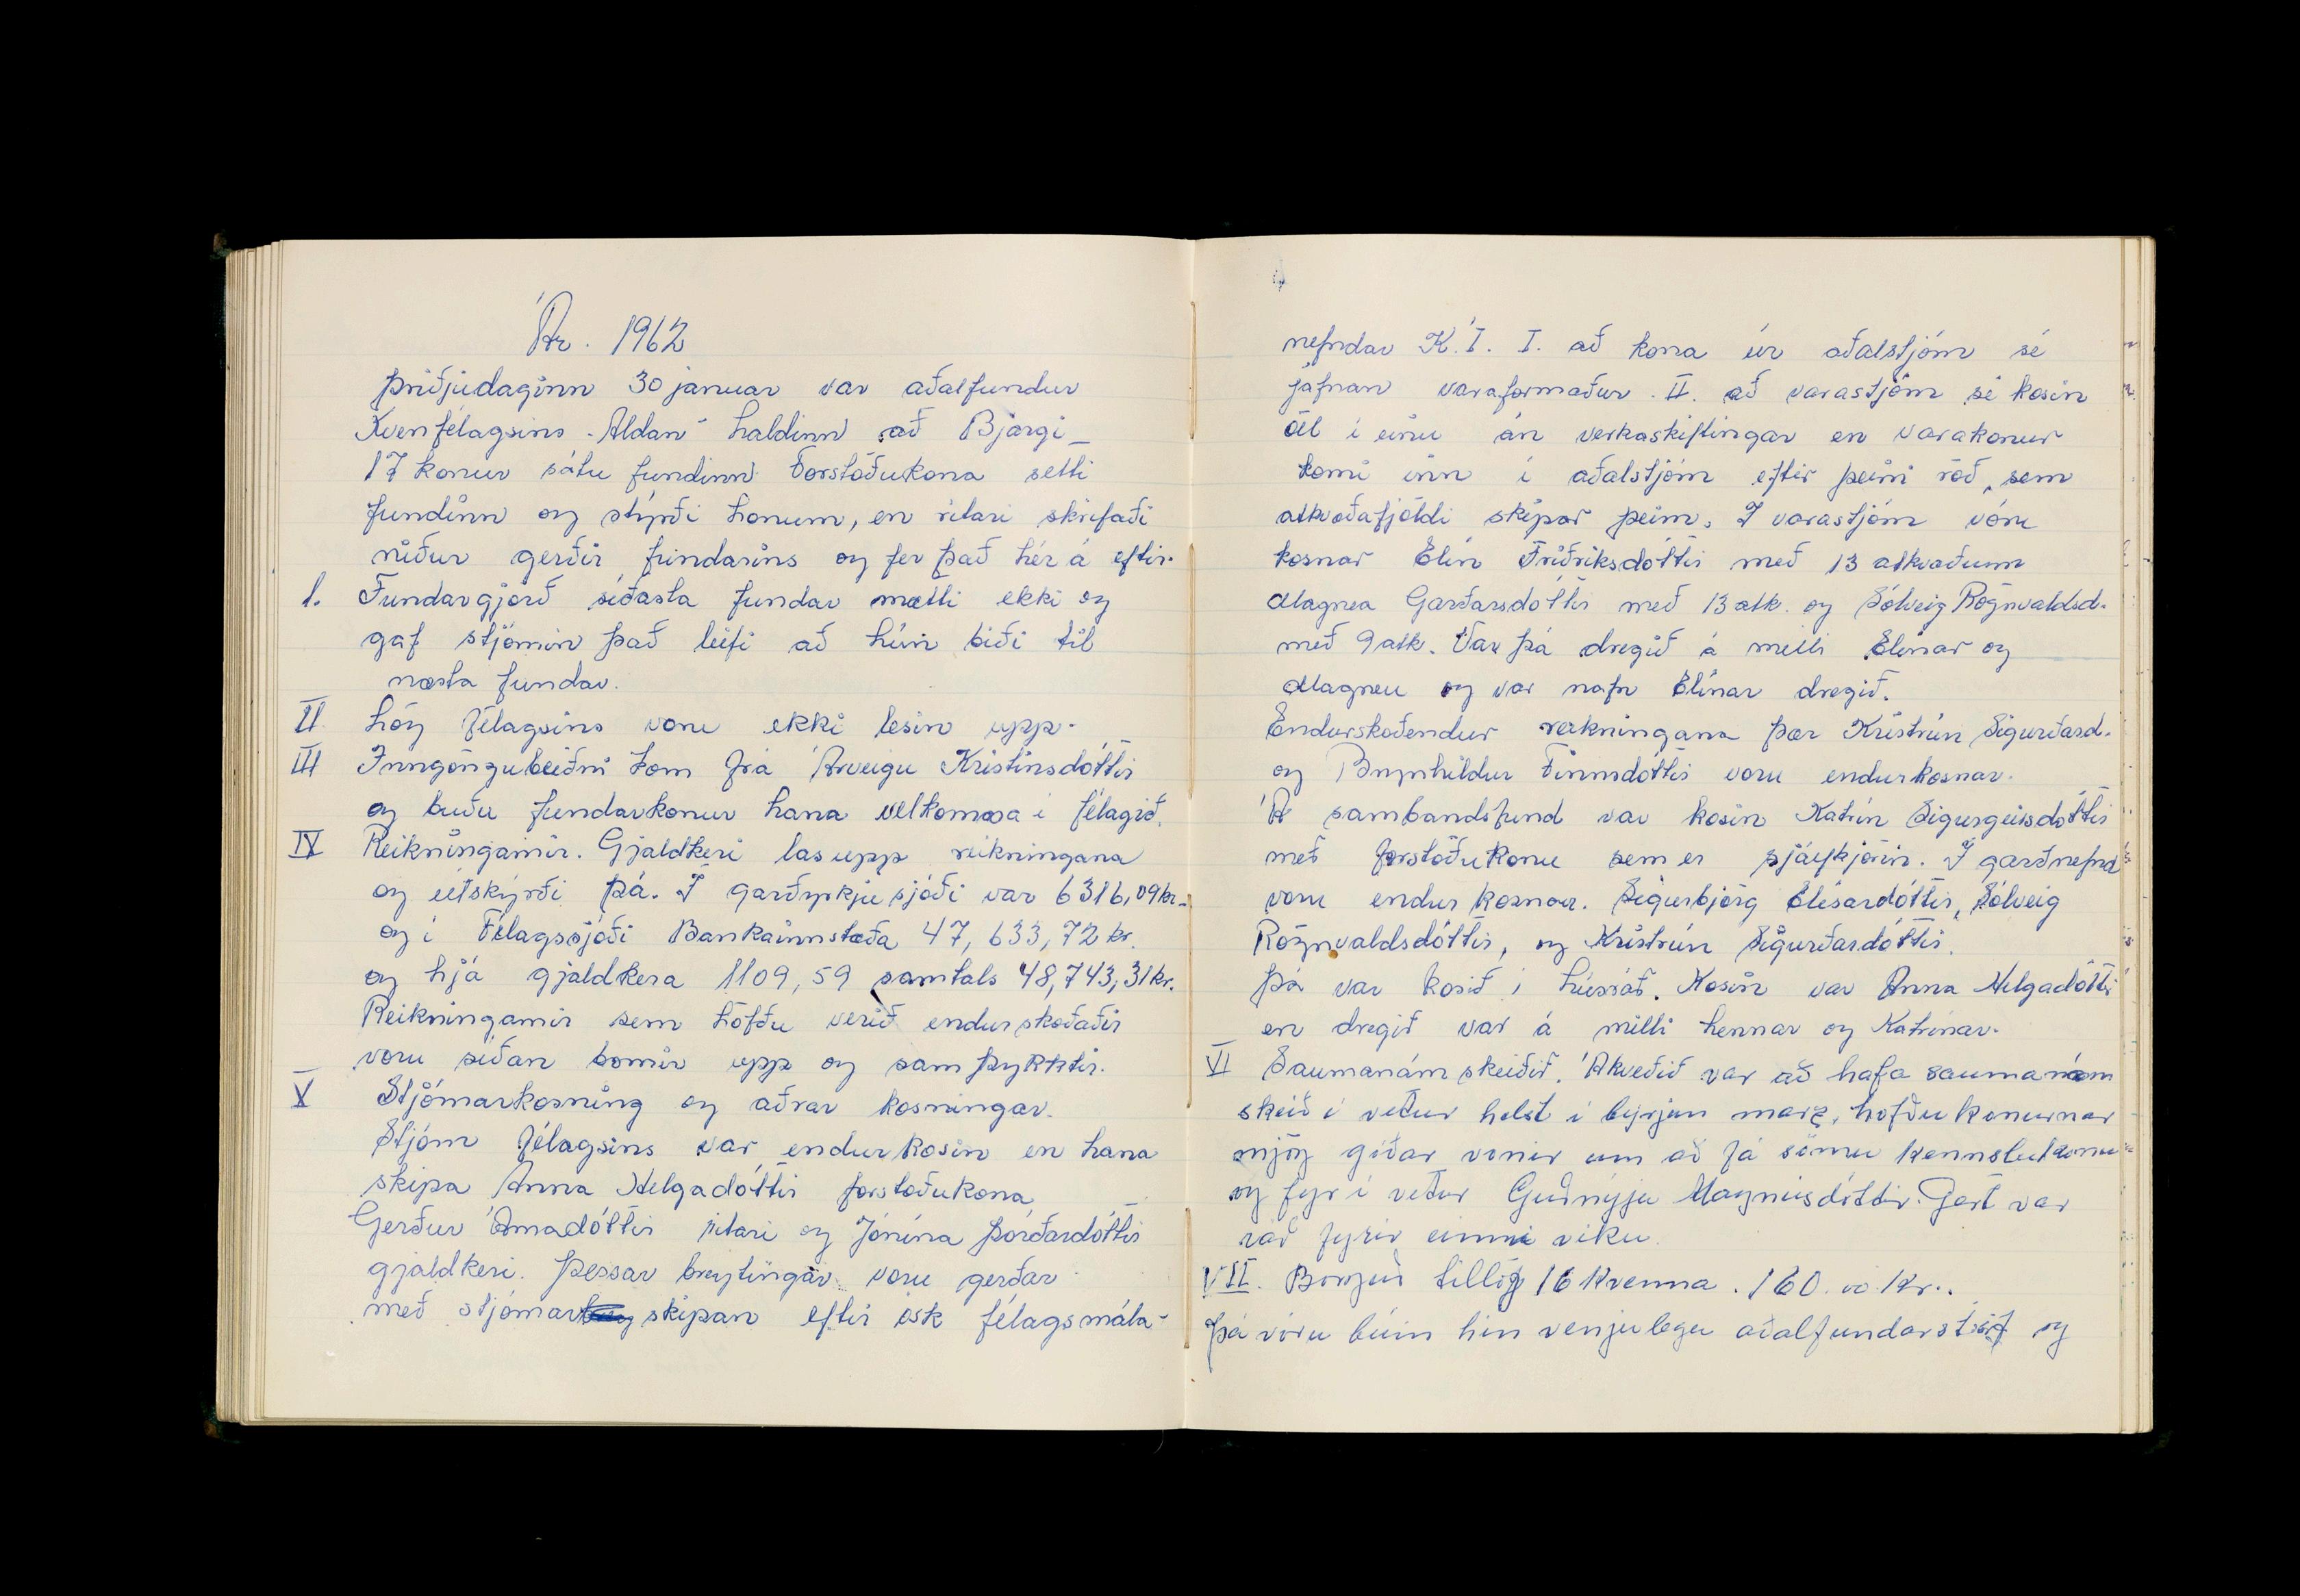 Ár. 1962
Þriðjudaginn 30 januar var aðalfundur
Kvenfélagsins "Aldan" haldinn að Bjargi_
17 konur sátu fundinn Forstöðukona setti
fundinn og stýrði honum, en ritari skrifaði
niður gerðir fundarins og fer það hér á eftir.
1. Fundargjörð siðasta fundar mætti ekki og
gaf stjórnin það leifi að hún biði til
næsta fundar.
II Lög félagsins voru ekki lesin upp.
III Inngöngubeiðni kom frá Árveigu Kristinsdóttir
og buðu fundarkonur hana velkomna i félagið.
IV Reikningarnir. Gjaldkeri las upp reikningana
og útskýrði þá. I garðyrkjusjóði var 6316,09kr_
og i Félagssjóði Bankainnstæða 47,633,72 kr.
og hjá gjaldkera 1109,59 samtals 48,743,31kr.
Reikningarnir sem höfðu verið endurskoðaðir
voru siðan bornir upp og samþykktir.
V Stjórnarkosning og aðrar kosningar.
Stjórn félagsins var endurkosin en hana
skipa Anna Helgadóttir forstöðukona
Gerður Árnadóttir ritari og Jónina Þórðardóttir
gjaldkeri. Þessar breytingar voru gerðar
með stjórnarskipan eftir ósk félagsmála-
nefndar K.Í. I. að kona úr aðalstjórn sé
jafnan varaformaður. II. að varastjórn sé kosin
öll i einu án verkaskiftingar en varakonur
komi inn i aðalstjórn eftir þeirri röð, sem
atkvæðafjöldi skipar þeim. I varastjórn vóru
kosnar Elin Friðriksdóttir með 13 atkvæðum
Magnea Garðarsdóttir með 13 atk. og Sólveig Rögnvaldsd.
með 9 atk. Var þá dregið á milli Elinar og
Magneu og var nafn Elinar dregið.
Endurskoðendur reikningana þær Kristrún Sigurðard.
og Brynhildur Finnsdóttir voru endurkosnar.
Á sambandsfund var kosin Katrin Sigurgeirsdóttir
með forstöðukonu sem er sjálfkjörin. I garðnefnd
voru endurkosnar. Sigurbjörg Elesardóttir, Sólveig
Rögnvaldsdóttir, og Kristrún Sigurðardóttir.
Þá var kosið i húsráð. Kosin var Anna Helgadóttir
en dregið var á milli hennar og Katrinar.
VI Saumanámskeiðið. Ákveðið var að hafa saumanám
skeið i vetur helst i byrjun marz. höfðu konurnar
mjög góðar vonir um að fá sömu kennslukonu
og fyr i vetur Guðnýju Magnúsdóttir. Gert var
ráð fyrir einni viku.
VII. Borguð tillög 16 kvenna. 160.00 kr..
Þá vóru búin hin venjulegu aðalfundarstörf og